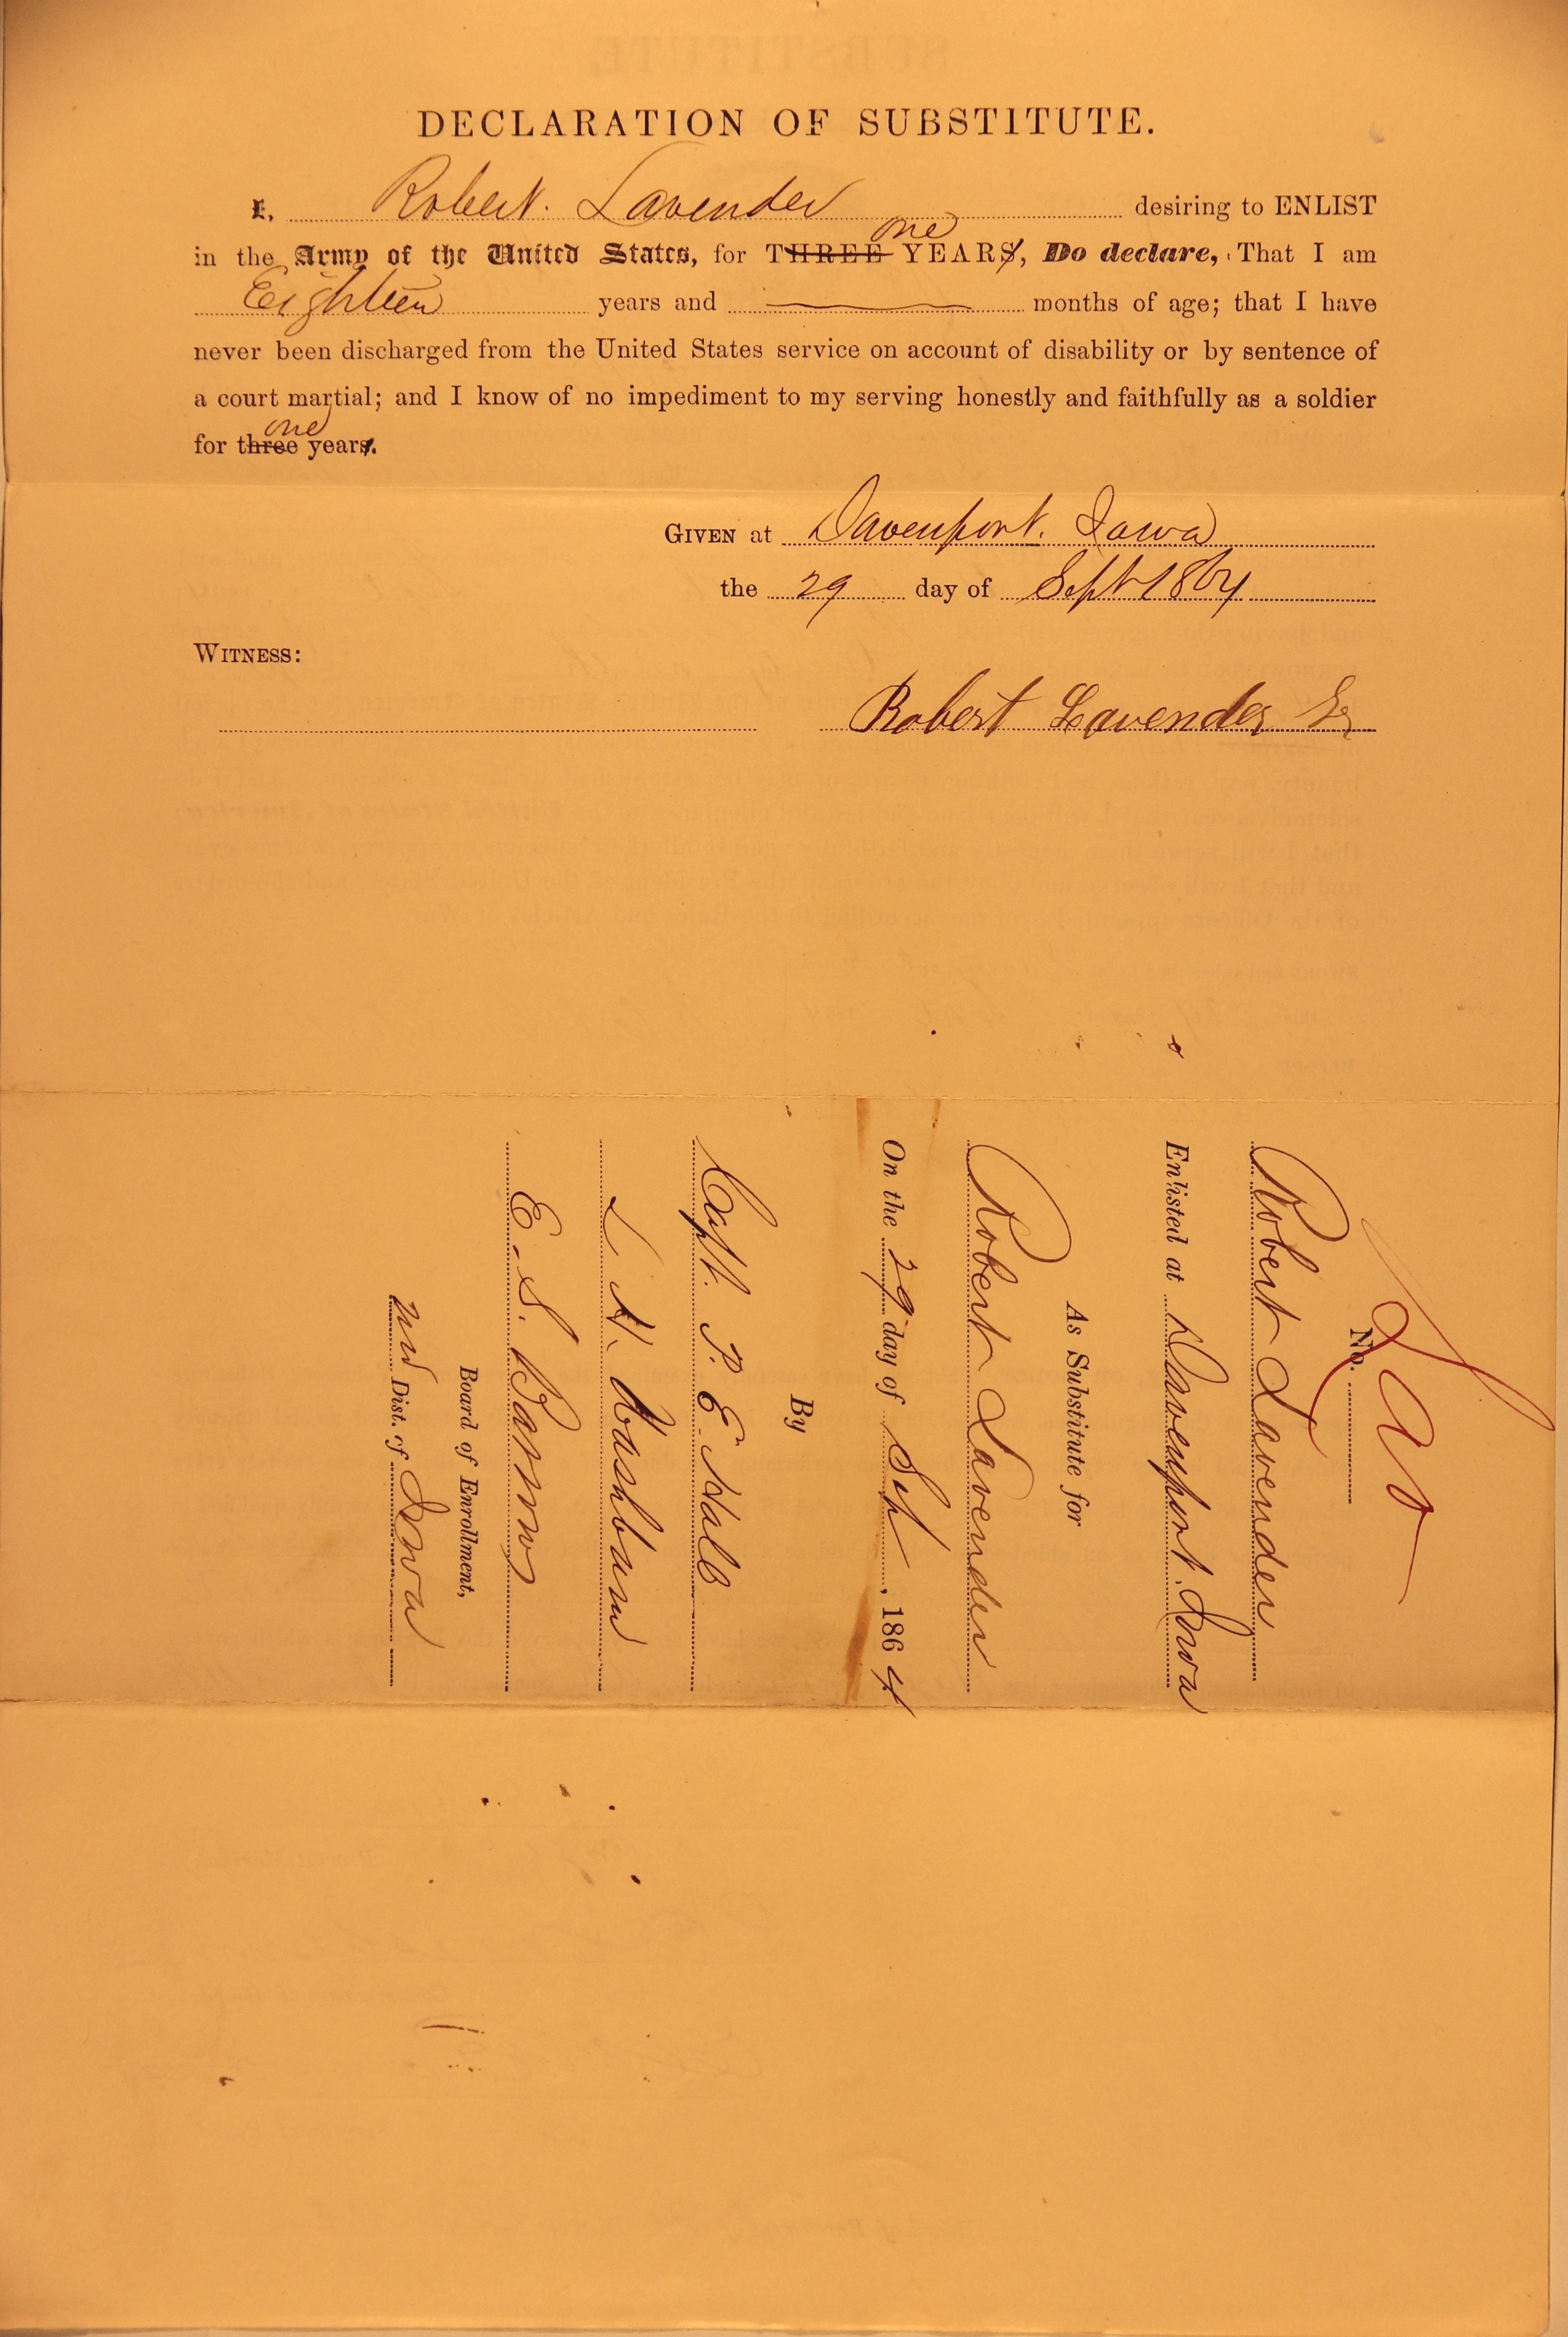 DECLARATION OF SUBSTITUTE.
I, Robert Lavender desiring to ENLIST
one
in the Army of the United States, for THREE YEARS, Do declare, That I am
Eighteen years and months of age; that I have
never been discharged from the United States service on account of disability or by sentence of
a court martial; and I know of no impediment to my serving honestly and faithfully as a soldier
one
for three years.
GIVEN at Davenport. Iowa
the 29 day of Sept 1864
WITNESS:
Robert Lavender
No.
Robert Lavender
Enlisted at Davenport. Iowa
As Substitute for
Robert Lavender
On the 29 day of Sep , 1864
By
Capt. P. E. Hall
L. H. Washburn
E. S. Barrows
Board of Enrollment,
2nd Dist. of Iowa